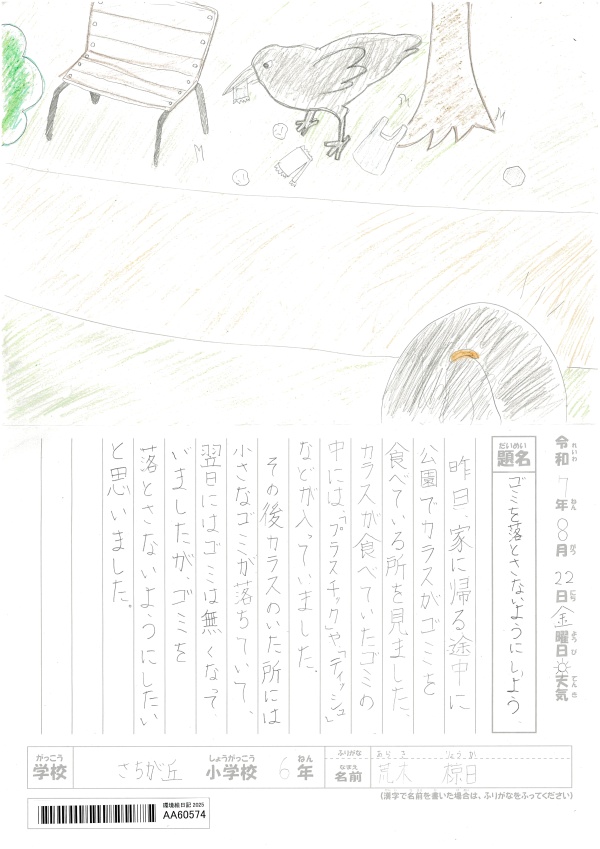 令和7年8月22日金曜日 天気
れいわ ねん がつ にち ようび てんき
題名 ゴミを落とさないようにしよう
だいめい
昨日、家に帰る途中に
公園でカラスがゴミを
食べている所を見ました。
カラスが食べていたゴミの
中には、「プラスチック」や「ティッシュ」
などが入っていました。
その後カラスのいた所には
小さなゴミが落ちていて、
翌日にはゴミは無くなって
いましたが、ゴミを
落とさないようにしたい
と思いました。
がっこう しょうがっこう ねん ふりがな あらき
学校 さちが丘 小学校 6年 なまえ 名前 荒木 椋日
(漢字で名前を書いた場合は、ふりがなをふってください)
環境絵日記 2025
AA60574